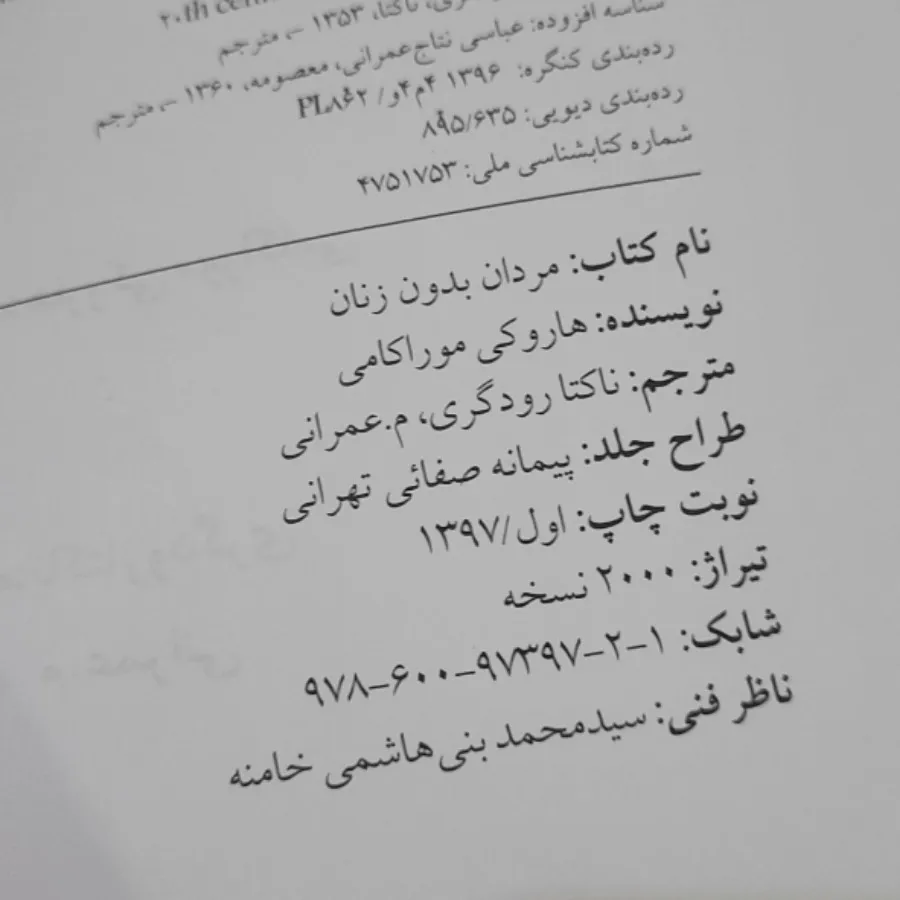 20th cent
ناکتا، ۱۳۵۳ -، مترجم
شناسه افزوده: عباسی نتاج‌عمرانی، معصومه، ۱۳۶۰ -، مترجم
رده‌بندی کنگره: ۱۳۹۶ ۴م۴و/ PL۸۶۲
رده‌بندی دیویی: ۸۹۵/۶۳۵
شماره کتابشناسی ملی: ۴۷۵۱۷۵۳
نام کتاب: مردان بدون زنان
نویسنده: هاروکی موراکامی
مترجم: ناکتا رودگری، م.عمرانی
طراح جلد: پیمانه صفائی تهرانی
نوبت چاپ: اول/۱۳۹۷
تیراژ: ۲۰۰۰ نسخه
شابک: ۱-۲-۹۷۳۹۷-۶۰۰-۹۷۸
ناظر فنی: سیدمحمد بنی‌هاشمی خامنه